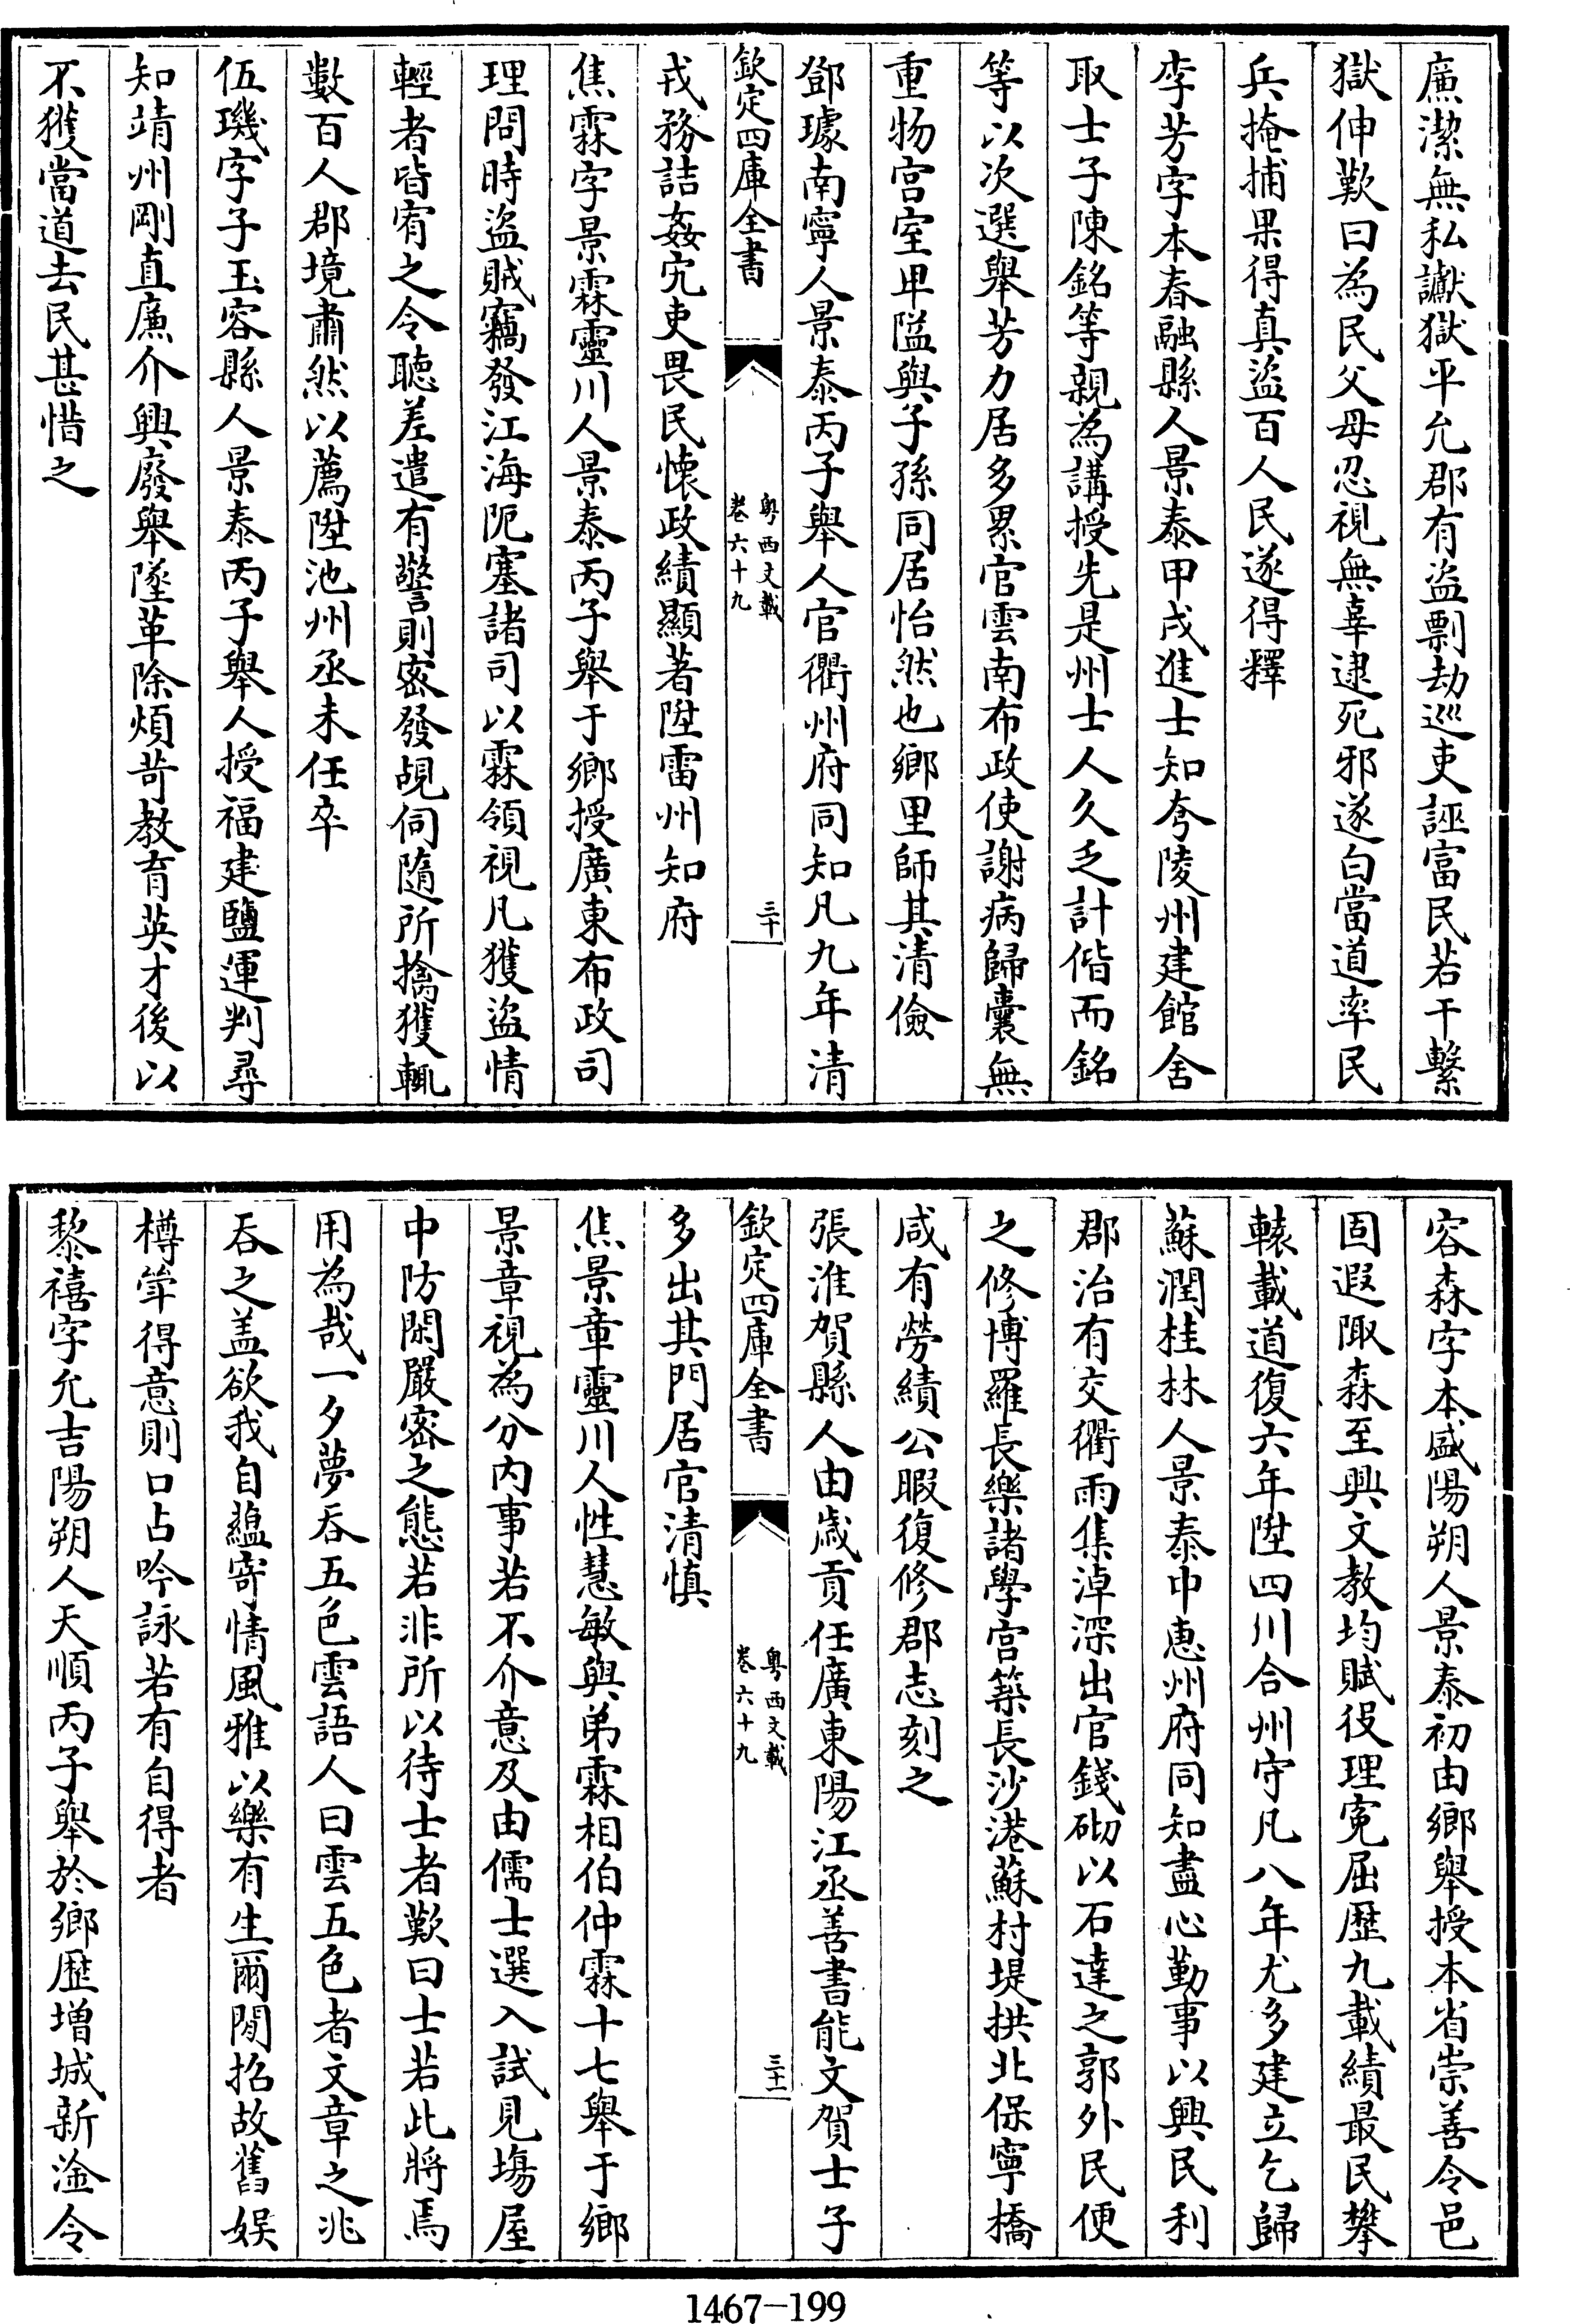 廉潔無私讞獄平允郡有盜剽劫巡吏誣富民若干繫
獄伸歎曰為民父母忍視無辜逮死邪遂白當道率民
兵掩捕果得真盜百人民遂得釋
李芳字本春融縣人景泰甲戌進士知夸陵州建館舍
取士子陳銘等親為講授先是州士人久乏計偕而銘
等以次選舉芳力居多累官雲南布政使謝病歸囊無
重物宮室卑隘與子孫同居怡然也鄉里師其清儉
鄧璩南寧人景泰丙子舉人官衢州府同知凡九年清
欽定四庫全書
粵西文載
卷六十九
三十
戎務詰姦宄吏畏民懷政績顯著陞雷州知府
焦霖字景霖靈川人景泰丙子舉于鄉授廣東布政司
理問時盜賊竊發江海阨塞諸司以霖領視凡獲盜情
輕者皆宥之令聽差遣有警則密發覘伺隨所擒獲輒
數百人郡境肅然以薦陞池州丞未任卒
伍璣字子玉容縣人景泰丙子舉人授福建鹽運判尋
知靖州剛直廉介興廢舉墜革除煩苛教育英才後以
不獲當道去民甚惜之
容森字本盛陽朔人景泰初由鄉舉授本省崇善令邑
固遐陬森至興文教均賦役理寃屈歷九載績最民攀
轅載道復六年陞四川合州守凡八年尤多建立乞歸
蘇潤桂林人景泰中惠州府同知盡心勤事以興民利
郡治有交衢雨集淖深出官錢砌以石達之郭外民便
之修博羅長樂諸學宮築長沙港蘇村堤拱北保寧橋
咸有勞績公暇復修郡志刻之
張淮賀縣人由歲貢任廣東陽江丞善書能文賀士子
欽定四庫全書
粵西文載
卷六十九
三十一
多出其門居官清慎
焦景章靈川人性慧敏與弟霖相伯仲霖十七舉于鄉
景章視為分內事若不介意及由儒士選入試見場屋
中防閑嚴密之態若非所以待士者歎曰士若此將焉
用為哉一夕夢吞五色雲語人曰雲五色者文章之兆
吞之盖欲我自蘊寄情風雅以樂有生爾閒招故舊娛
樽斚得意則口占吟詠若有自得者
黎禧字允吉陽朔人天順丙子舉於鄉歷增城新淦令
1467—199